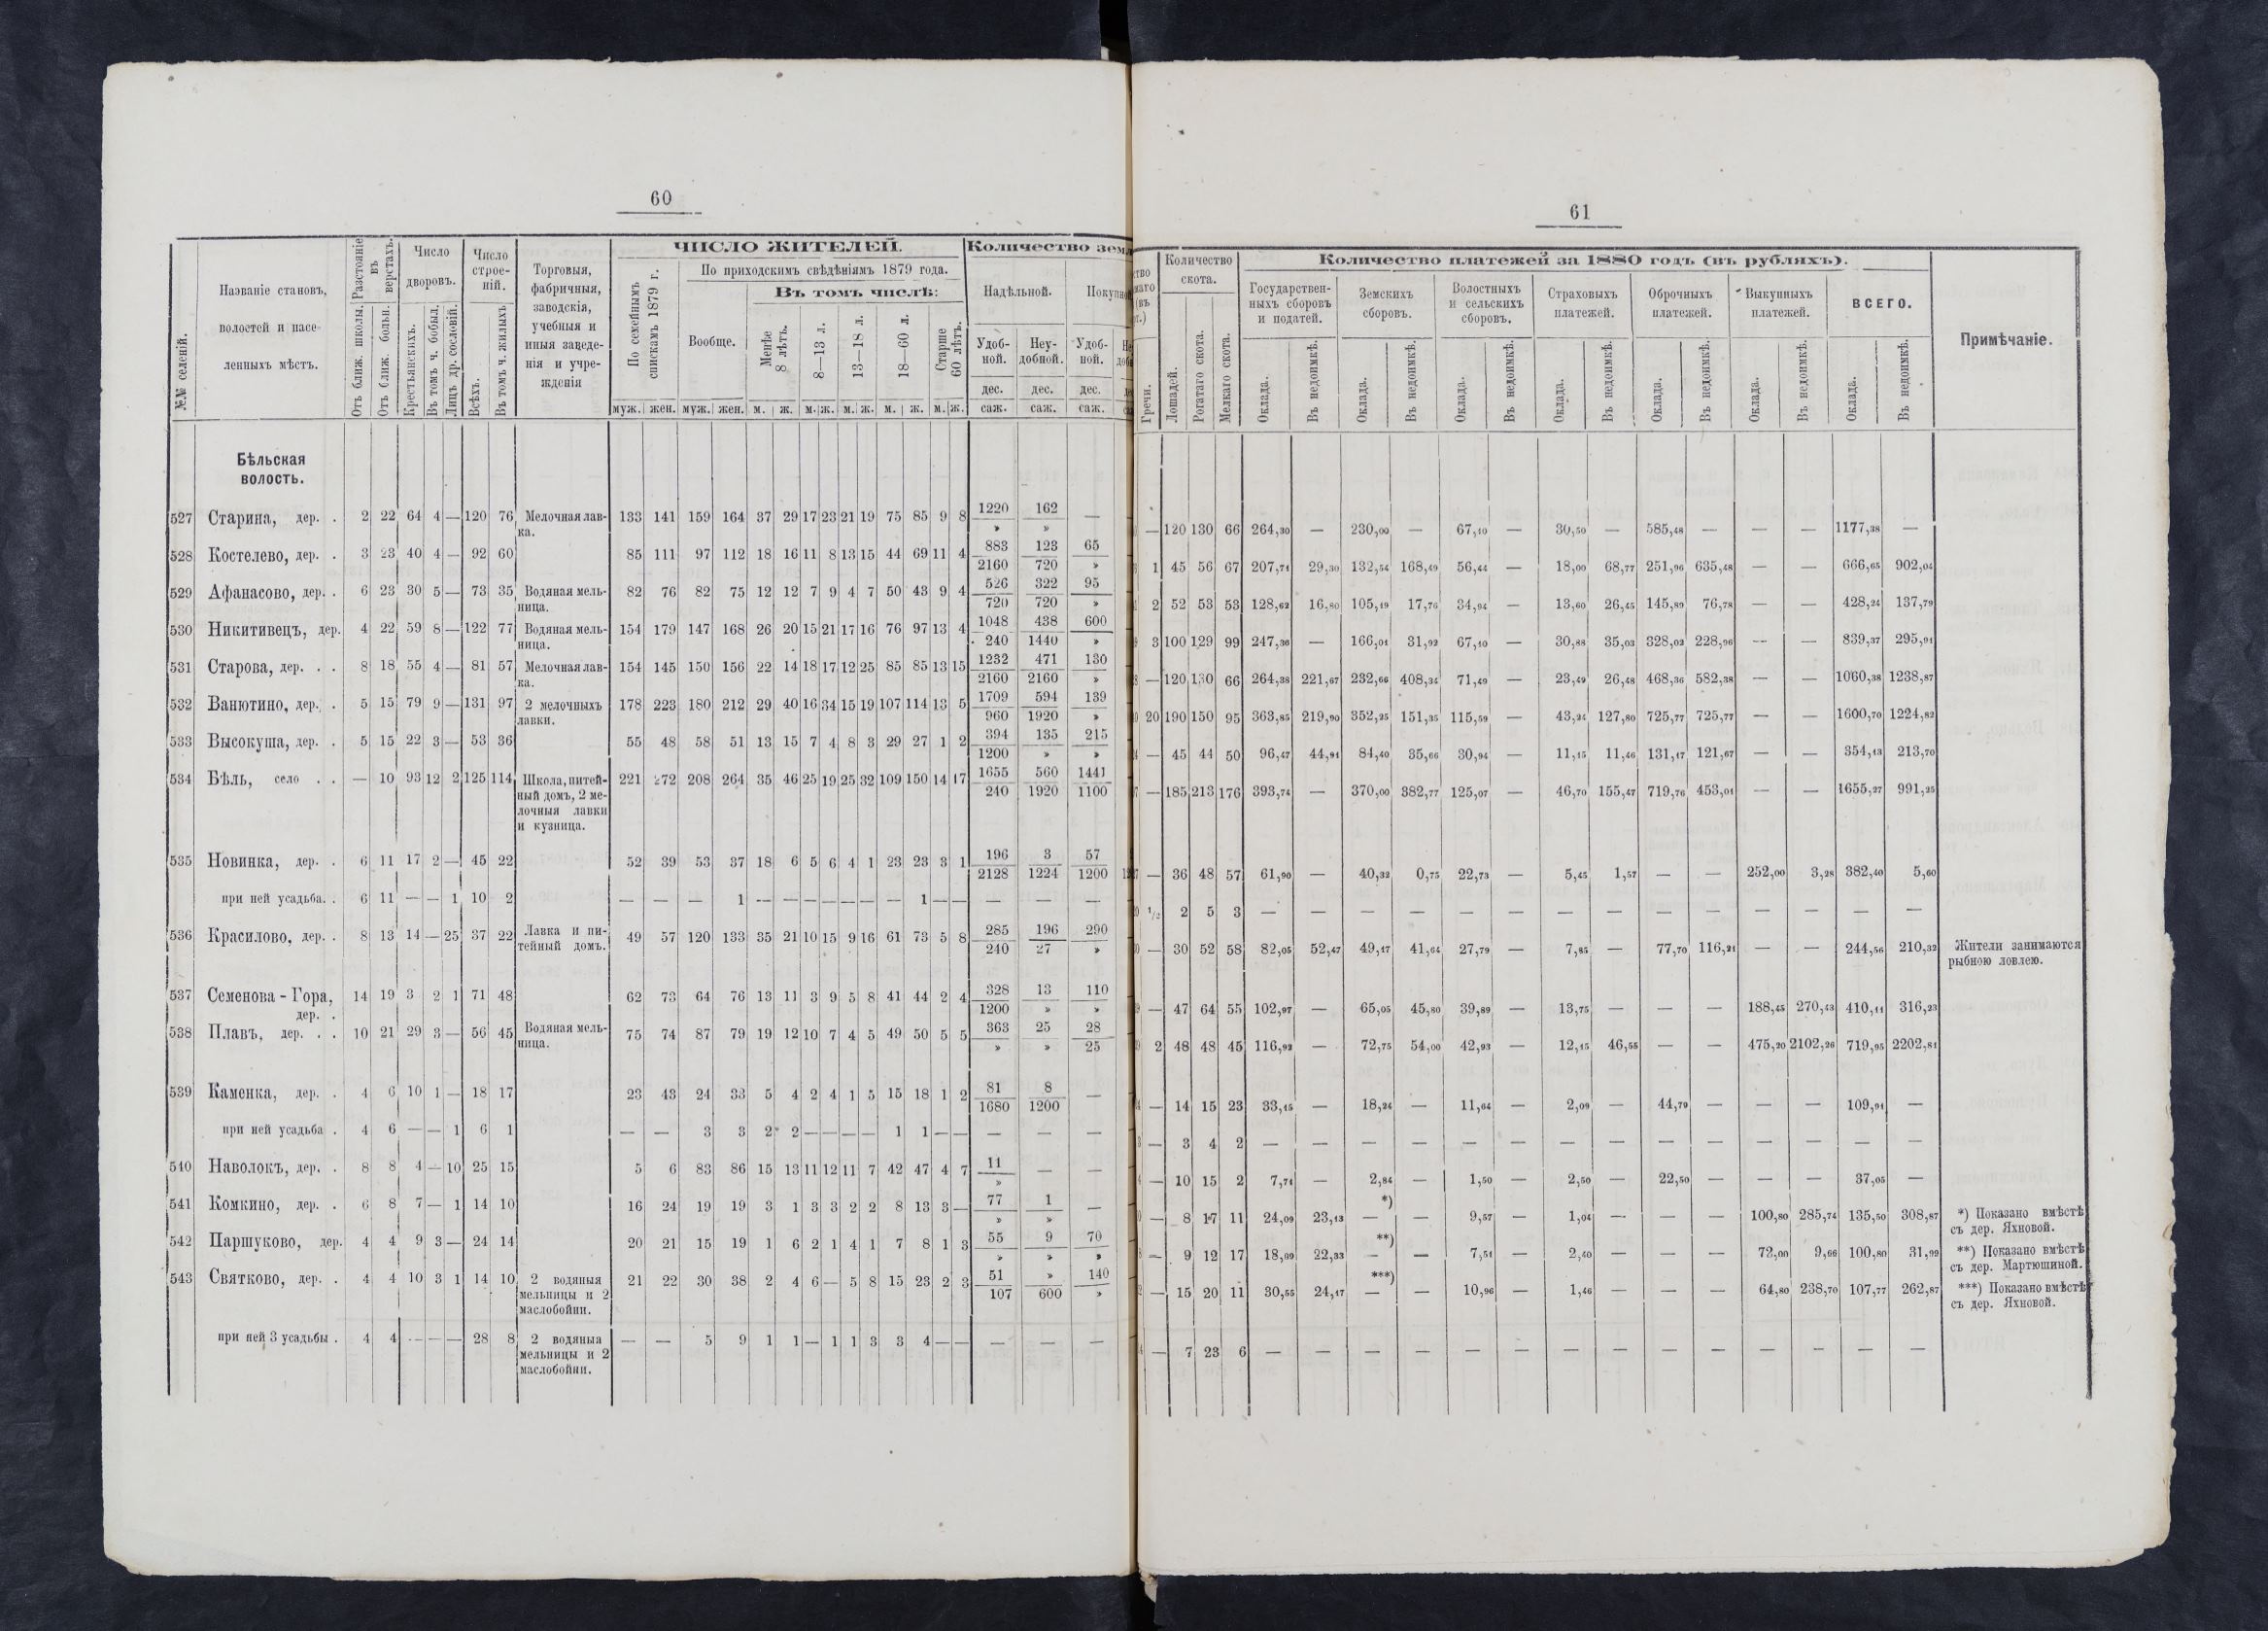 60
№№ селеній.
Названіе становъ, волостей и населенныхъ мѣстъ.
Разстояніе въ верстахъ.
Отъ ближ. школы.
Отъ ближ. больн.
Число дворовъ.
Крестьянскихъ.
Въ томъ ч. бобыл.
Лицъ др. сословій.
Число строеній.
Всѣхъ.
Въ томъ ч. жилыхъ.
Торговыя, фабричныя, заводскія, учебныя и иныя заведенія и учрежденія
ЧИСЛО ЖИТЕЛЕЙ.
По семейнымъ спискамъ 1879 г.
По приходскимъ свѣдѣніямъ 1879 года.
Вообще.
Въ томъ числѣ:
Менѣе 8 лѣтъ.
8—13 л.
13—18 л.
18—60 л.
Старше 60 лѣтъ.
муж. жен. муж. жен. м. ж. м. ж. м. ж. м. ж. м. ж.
Количество зем
Надѣльной.
Удобной. Неудобной. Удобной.
дес. дес. дес.
саж. саж. саж.
Бѣльская
волость.
527 Старина, дер. . 2 22 64 4 — 120 76 Мелочная лавка. 133 141 159 164 37 29 17 23 21 19 75 85 9 8 1220/» 162/» —
528 Костелево, дер. . 3 23 40 4 — 92 60 85 111 97 112 18 16 11 8 13 15 44 69 11 4 883/2160 123/720 65/»
529 Афанасово, дер. . 6 23 30 5 — 73 35 Водяная мельница. 82 76 82 75 12 12 7 9 4 7 50 43 9 4 526/720 322/720 95/»
530 Никитивецъ, дер. 4 22 59 8 — 122 77 Водяная мельница. 154 179 147 168 26 20 15 21 17 16 76 97 13 4 1048/240 438/1440 600/»
531 Старова, дер. . . 8 18 55 4 — 81 57 Мелочная лавка. 154 145 150 156 22 14 18 17 12 25 85 85 13 15 1232/2160 471/2160 130/»
532 Ванютино, дер. . 5 15 79 9 — 131 97 2 мелочныхъ лавки. 178 223 180 212 29 40 16 34 15 19 107 114 13 5 1709/960 594/1920 139/»
533 Высокуша, дер. . 5 15 22 3 — 53 36 55 48 58 51 13 15 7 4 8 3 29 27 1 2 394/1200 135/» 215/»
534 Бѣль, село . . — 10 93 12 2 125 114 Школа, питейный домъ, 2 мелочныя лавки и кузница. 221 272 208 264 35 46 25 19 25 32 109 150 14 17 1655/240 560/1920 1441/1100
535 Новинка, дер. . 6 11 17 2 — 45 22 52 39 53 37 18 6 5 6 4 1 23 23 3 1 196/2128 3/1224 57/1200
при ней усадьба. . 6 11 — — 1 10 2 — — — 1 — — — — — — — 1 — — — — —
536 Красилово, дер. . 8 13 14 — 25 37 22 Лавка и питейный домъ. 49 57 120 133 35 21 10 15 9 16 61 73 5 8 285/240 196/27 290/»
537 Семенова - Гора, дер. . 14 19 3 2 1 71 48 62 73 64 76 13 11 3 9 5 8 41 44 2 4 328/1200 13/» 110/»
538 Плавъ, дер. . . 10 21 29 3 — 56 45 Водяная мельница. 75 74 87 79 19 12 10 7 4 5 49 50 5 5 363/» 25/» 28/25
539 Каменка, дер. . 4 6 10 1 — 18 17 23 43 24 33 5 4 2 4 1 5 15 18 1 2 81/1680 8/1200 —
при ней усадьба . 4 6 — — 1 6 1 — — 3 3 2 2 — — — — 1 1 — — — — —
540 Наволокъ, дер. . 8 8 4 — 10 25 15 5 6 83 86 15 13 11 12 11 7 42 47 4 7 11/» — —
541 Комкино, дер. . 6 8 7 — 1 14 10 16 24 19 19 3 1 3 3 2 2 8 13 3 — 77/» 1/» —
542 Паршуково, дер. 4 4 9 3 — 24 14 20 21 15 19 1 6 2 1 4 1 7 8 1 3 55/» 9/» 70/»
543 Святково, дер. . 4 4 10 3 1 14 10 2 водяныя мельницы и 2 маслобойни. 21 22 30 38 2 4 6 — 5 8 15 23 2 3 51/107 »/600 140/»
при ней 3 усадьбы . 4 4 — — — 28 8 2 водяныя мельницы и 2 маслобойни. — — 5 9 1 1 — 1 1 3 3 4 — — — — —
61
Гречи.
Количество скота.
Лошадей.
Рогатаго скота.
Мелкаго скота.
Количество платежей за 1880 годъ (въ рубляхъ).
Государственныхъ сборовъ и податей.
Земскихъ сборовъ.
Волостныхъ и сельскихъ сборовъ.
Страховыхъ платежей.
Оброчныхъ платежей.
Выкупныхъ платежей.
ВСЕГО.
Оклада. Въ недоимкѣ. Оклада. Въ недоимкѣ. Оклада. Въ недоимкѣ. Оклада. Въ недоимкѣ. Оклада. Въ недоимкѣ. Оклада. Въ недоимкѣ. Оклада. Въ недоимкѣ.
Примѣчаніе.
— 120 130 66 264,30 — 230,00 — 67,10 — 30,50 — 585,48 — — — 1177,38 —
1 45 56 67 207,71 29,30 132,54 168,49 56,44 — 18,00 68,77 251,96 635,48 — — 666,65 902,04
2 52 53 53 128,62 16,80 105,19 17,76 34,94 — 13,60 26,45 145,89 76,78 — — 428,24 137,79
3 100 129 99 247,36 — 166,01 31,92 67,10 — 30,88 35,03 328,02 228,96 — — 839,37 295,91
— 120 130 66 264,38 221,67 232,66 408,34 71,49 — 23,49 26,48 468,36 582,38 — — 1060,38 1238,87
20 190 150 95 363,85 219,90 352,25 151,35 115,59 — 43,24 127,80 725,77 725,77 — — 1600,70 1224,82
— 45 44 50 96,47 44,91 84,40 35,66 30,94 — 11,15 11,46 131,17 121,67 — — 354,13 213,70
— 185 213 176 393,74 — 370,00 382,77 125,07 — 46,70 155,47 719,76 453,01 — — 1655,27 991,25
— 36 48 57 61,90 — 40,32 0,75 22,73 — 5,45 1,57 — — 252,00 3,28 382,40 5,60
1/2 2 5 3 — — — — — — — — — — — — — —
— 30 52 58 82,05 52,47 49,17 41,64 27,79 — 7,85 — 77,70 116,21 — — 244,56 210,32 Жители занимаются
рыбною ловлею.
— 47 64 55 102,97 — 65,05 45,80 39,89 — 13,75 — — — 188,45 270,43 410,11 316,23
2 48 48 45 116,92 — 72,75 54,00 42,93 — 12,15 46,55 — — 475,20 2102,26 719,95 2202,81
— 14 15 23 33,15 — 18,24 — 11,64 — 2,09 — 44,79 — — — 109,91 —
— 3 4 2 — — — — — — — — — — — — — —
— 10 15 2 7,71 — 2,84 — 1,50 — 2,50 — 22,50 — — — 37,05 —
— 8 17 11 24,09 23,13 *) — — 9,57 — 1,04 — — — 100,80 285,74 135,50 308,87 *) Показано вмѣстѣ
съ дер. Яхновой.
— 9 12 17 18,89 22,33 **) — — 7,51 — 2,40 — — — 72,00 9,66 100,80 31,99 **) Показано вмѣстѣ
съ дер. Мартюшиной.
— 15 20 11 30,55 24,17 ***) — — 10,96 — 1,46 — — — 64,80 238,70 107,77 262,87 ***) Показано вмѣстѣ
съ дер. Яхновой.
— 7 23 6 — — — — — — — — — — — — — —